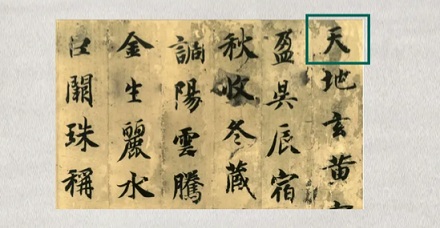 天地玄黄
盈昃辰宿
秋收冬藏
調陽雲騰
金生麗水
闕珠稱